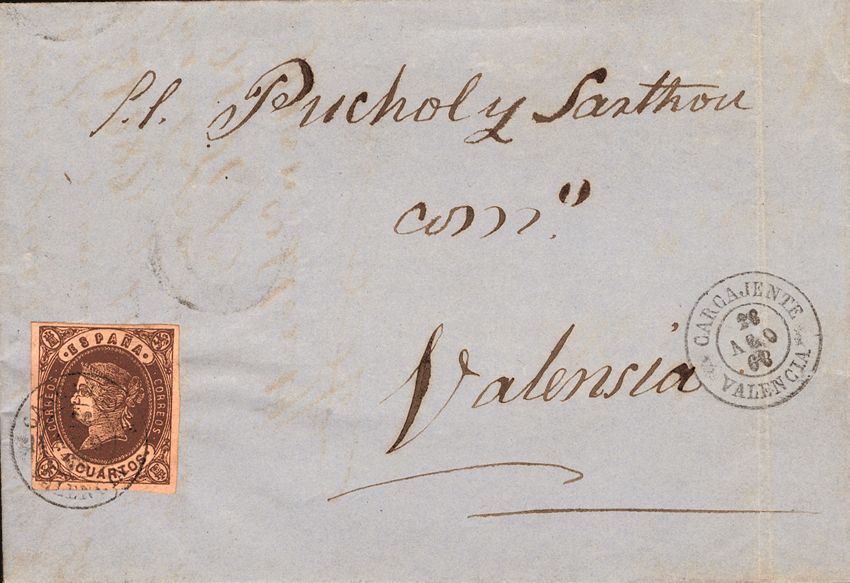 S.S. Puchol y Sarthou
com.º
Valensia
CARCAJENTE
26
AGO
VALENCIA
ESPAÑA
CORREOS
CORREOS
4 CUARTOS